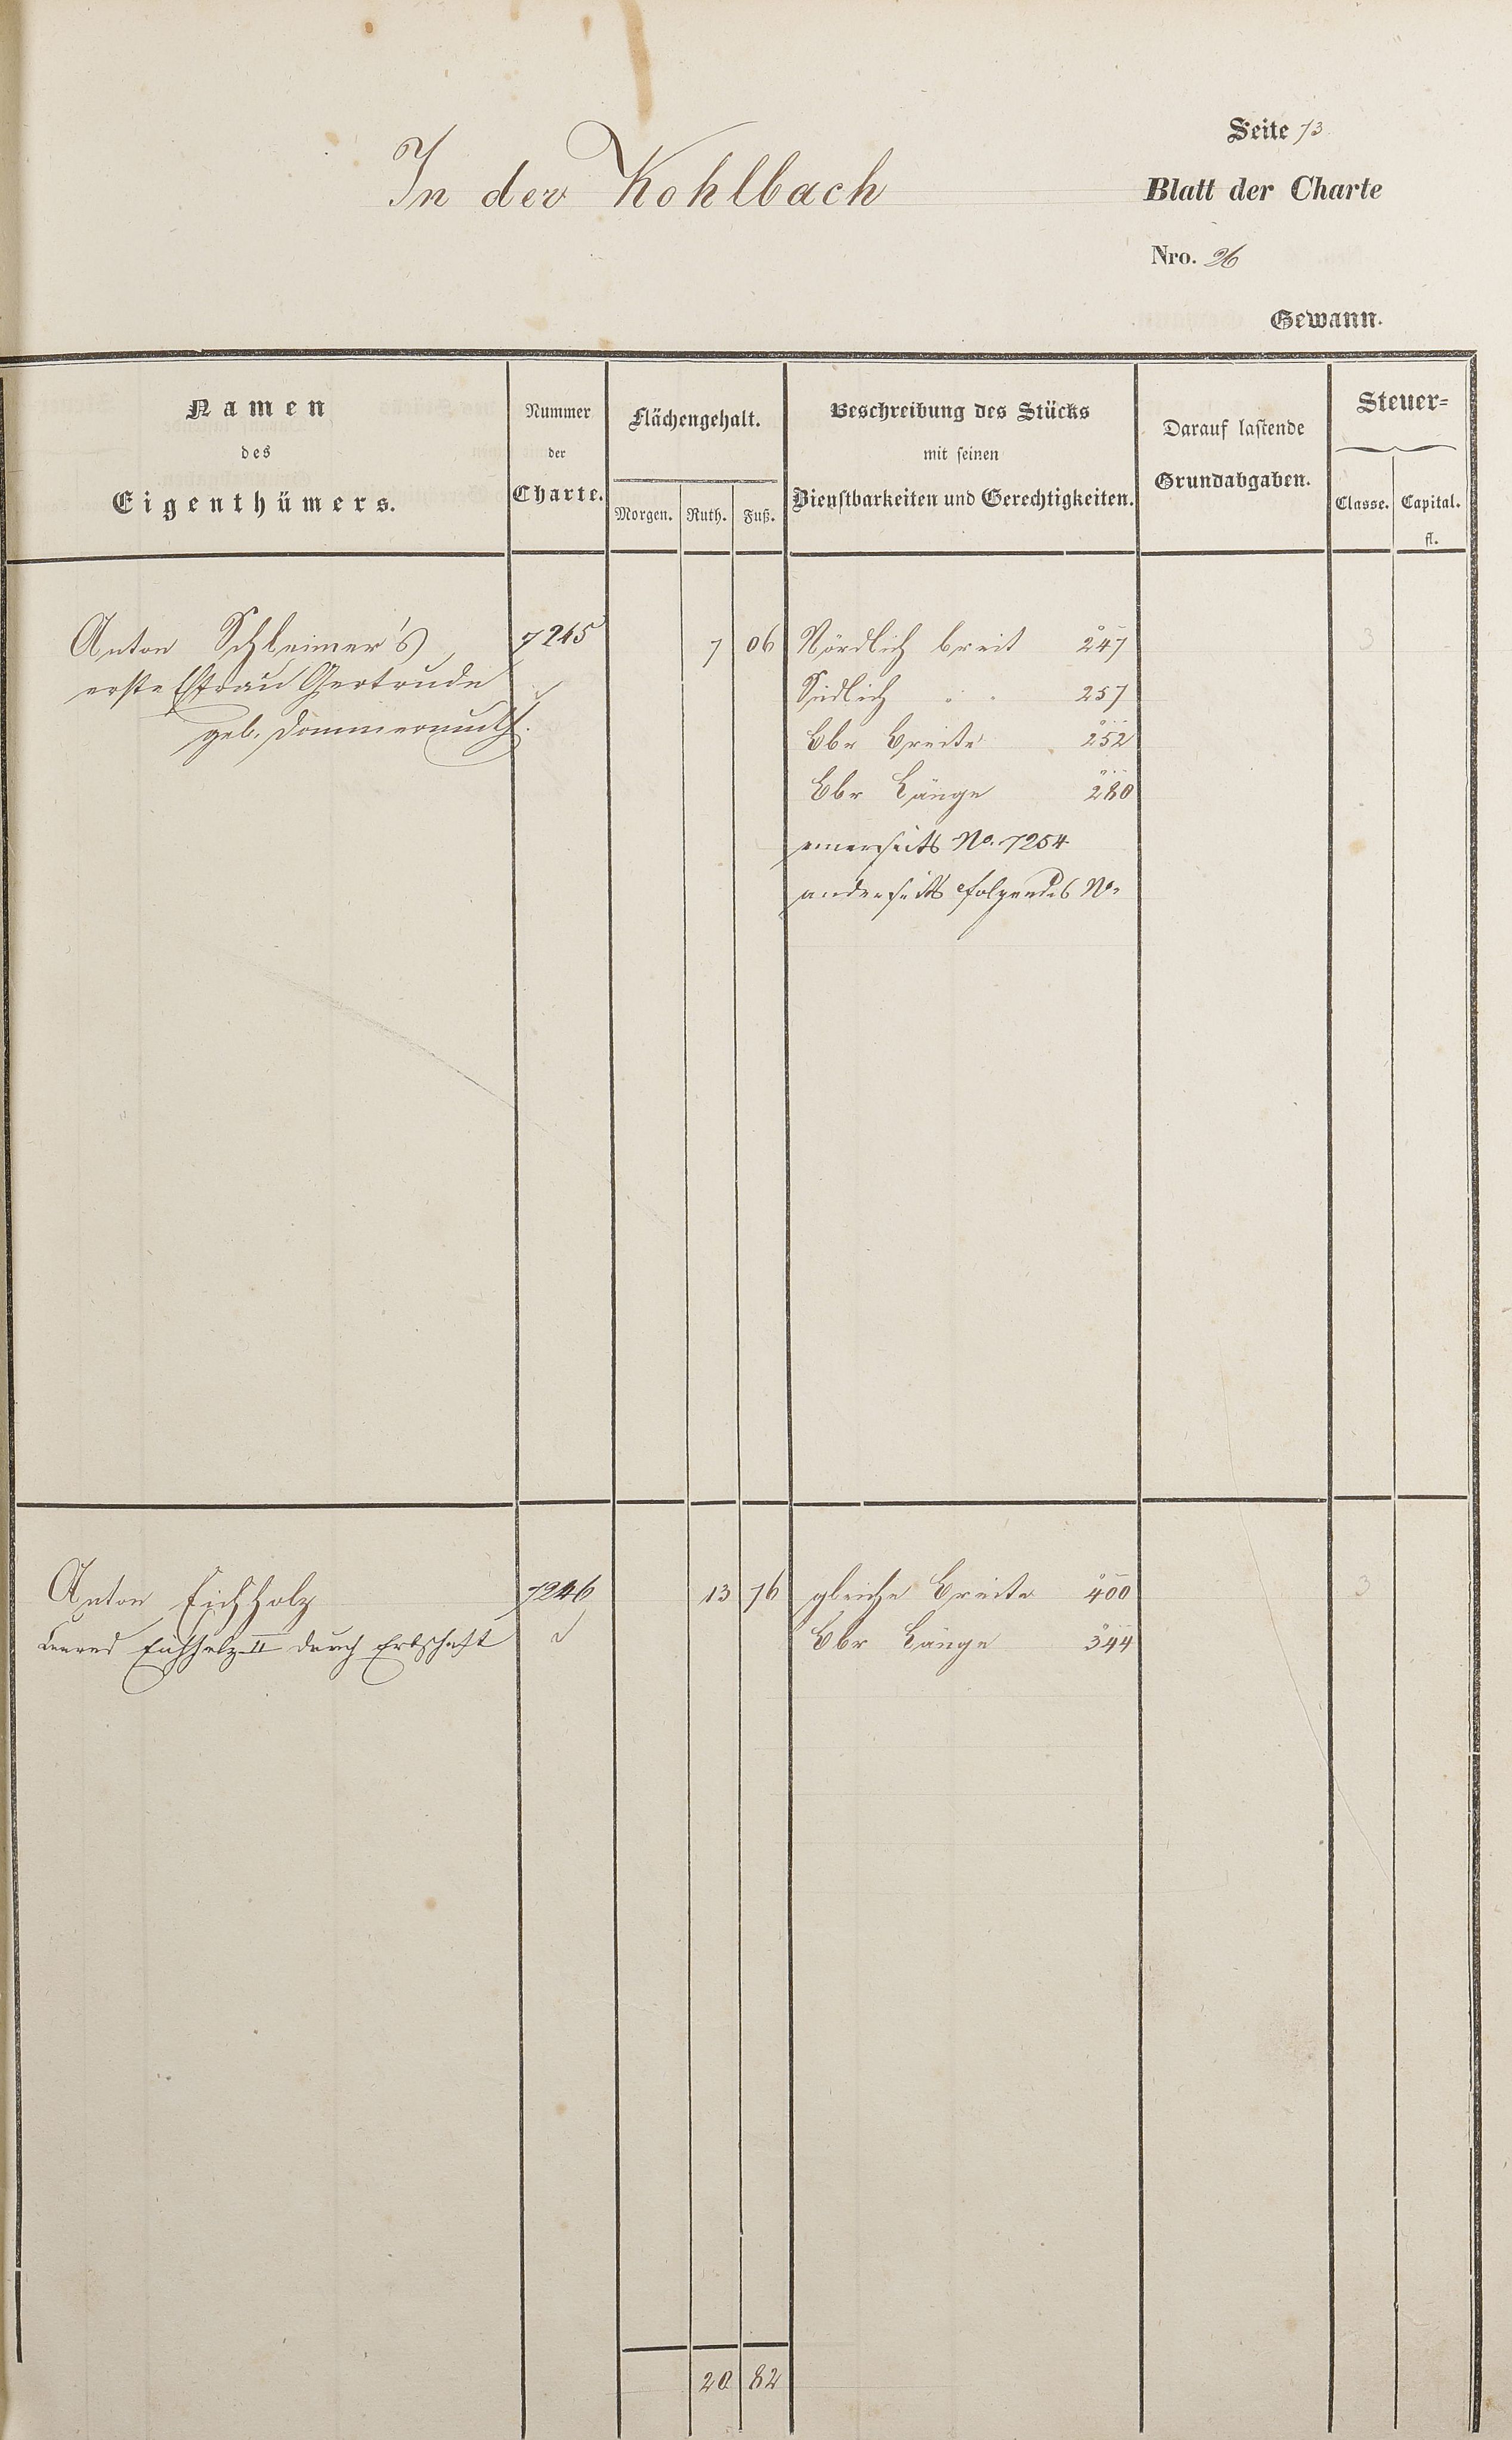 Seite 73
In der Kohlbach
Blatt der Charte
Nro. 26
Gewann.
Namen
des
Eigenthümers.
Nummer
der
Charte.
Flächengehalt.
Morgen. Ruth. Fuß.
Beschreibung des Stücks
mit seinen
Dienstbarkeiten und Gerechtigkeiten.
Darauf lastende
Grundabgaben.
Steuer=
Classe. Capital.
fl.
Anton Schleimer's 7245 7 06 Nördlich breit 247 3
erste Ehfrau Gertrude Südlich " " 257
geb. Dommermuth. Ebr Breite 252
Ebr Länge 280
einerseits No. 7254
anderseits folgendes No.
Anton Eichholz 7246 13 76 gleiche Breite 400 3
Conrad Eichholz II durch Erbschaft Ebr Länge 344
20 82